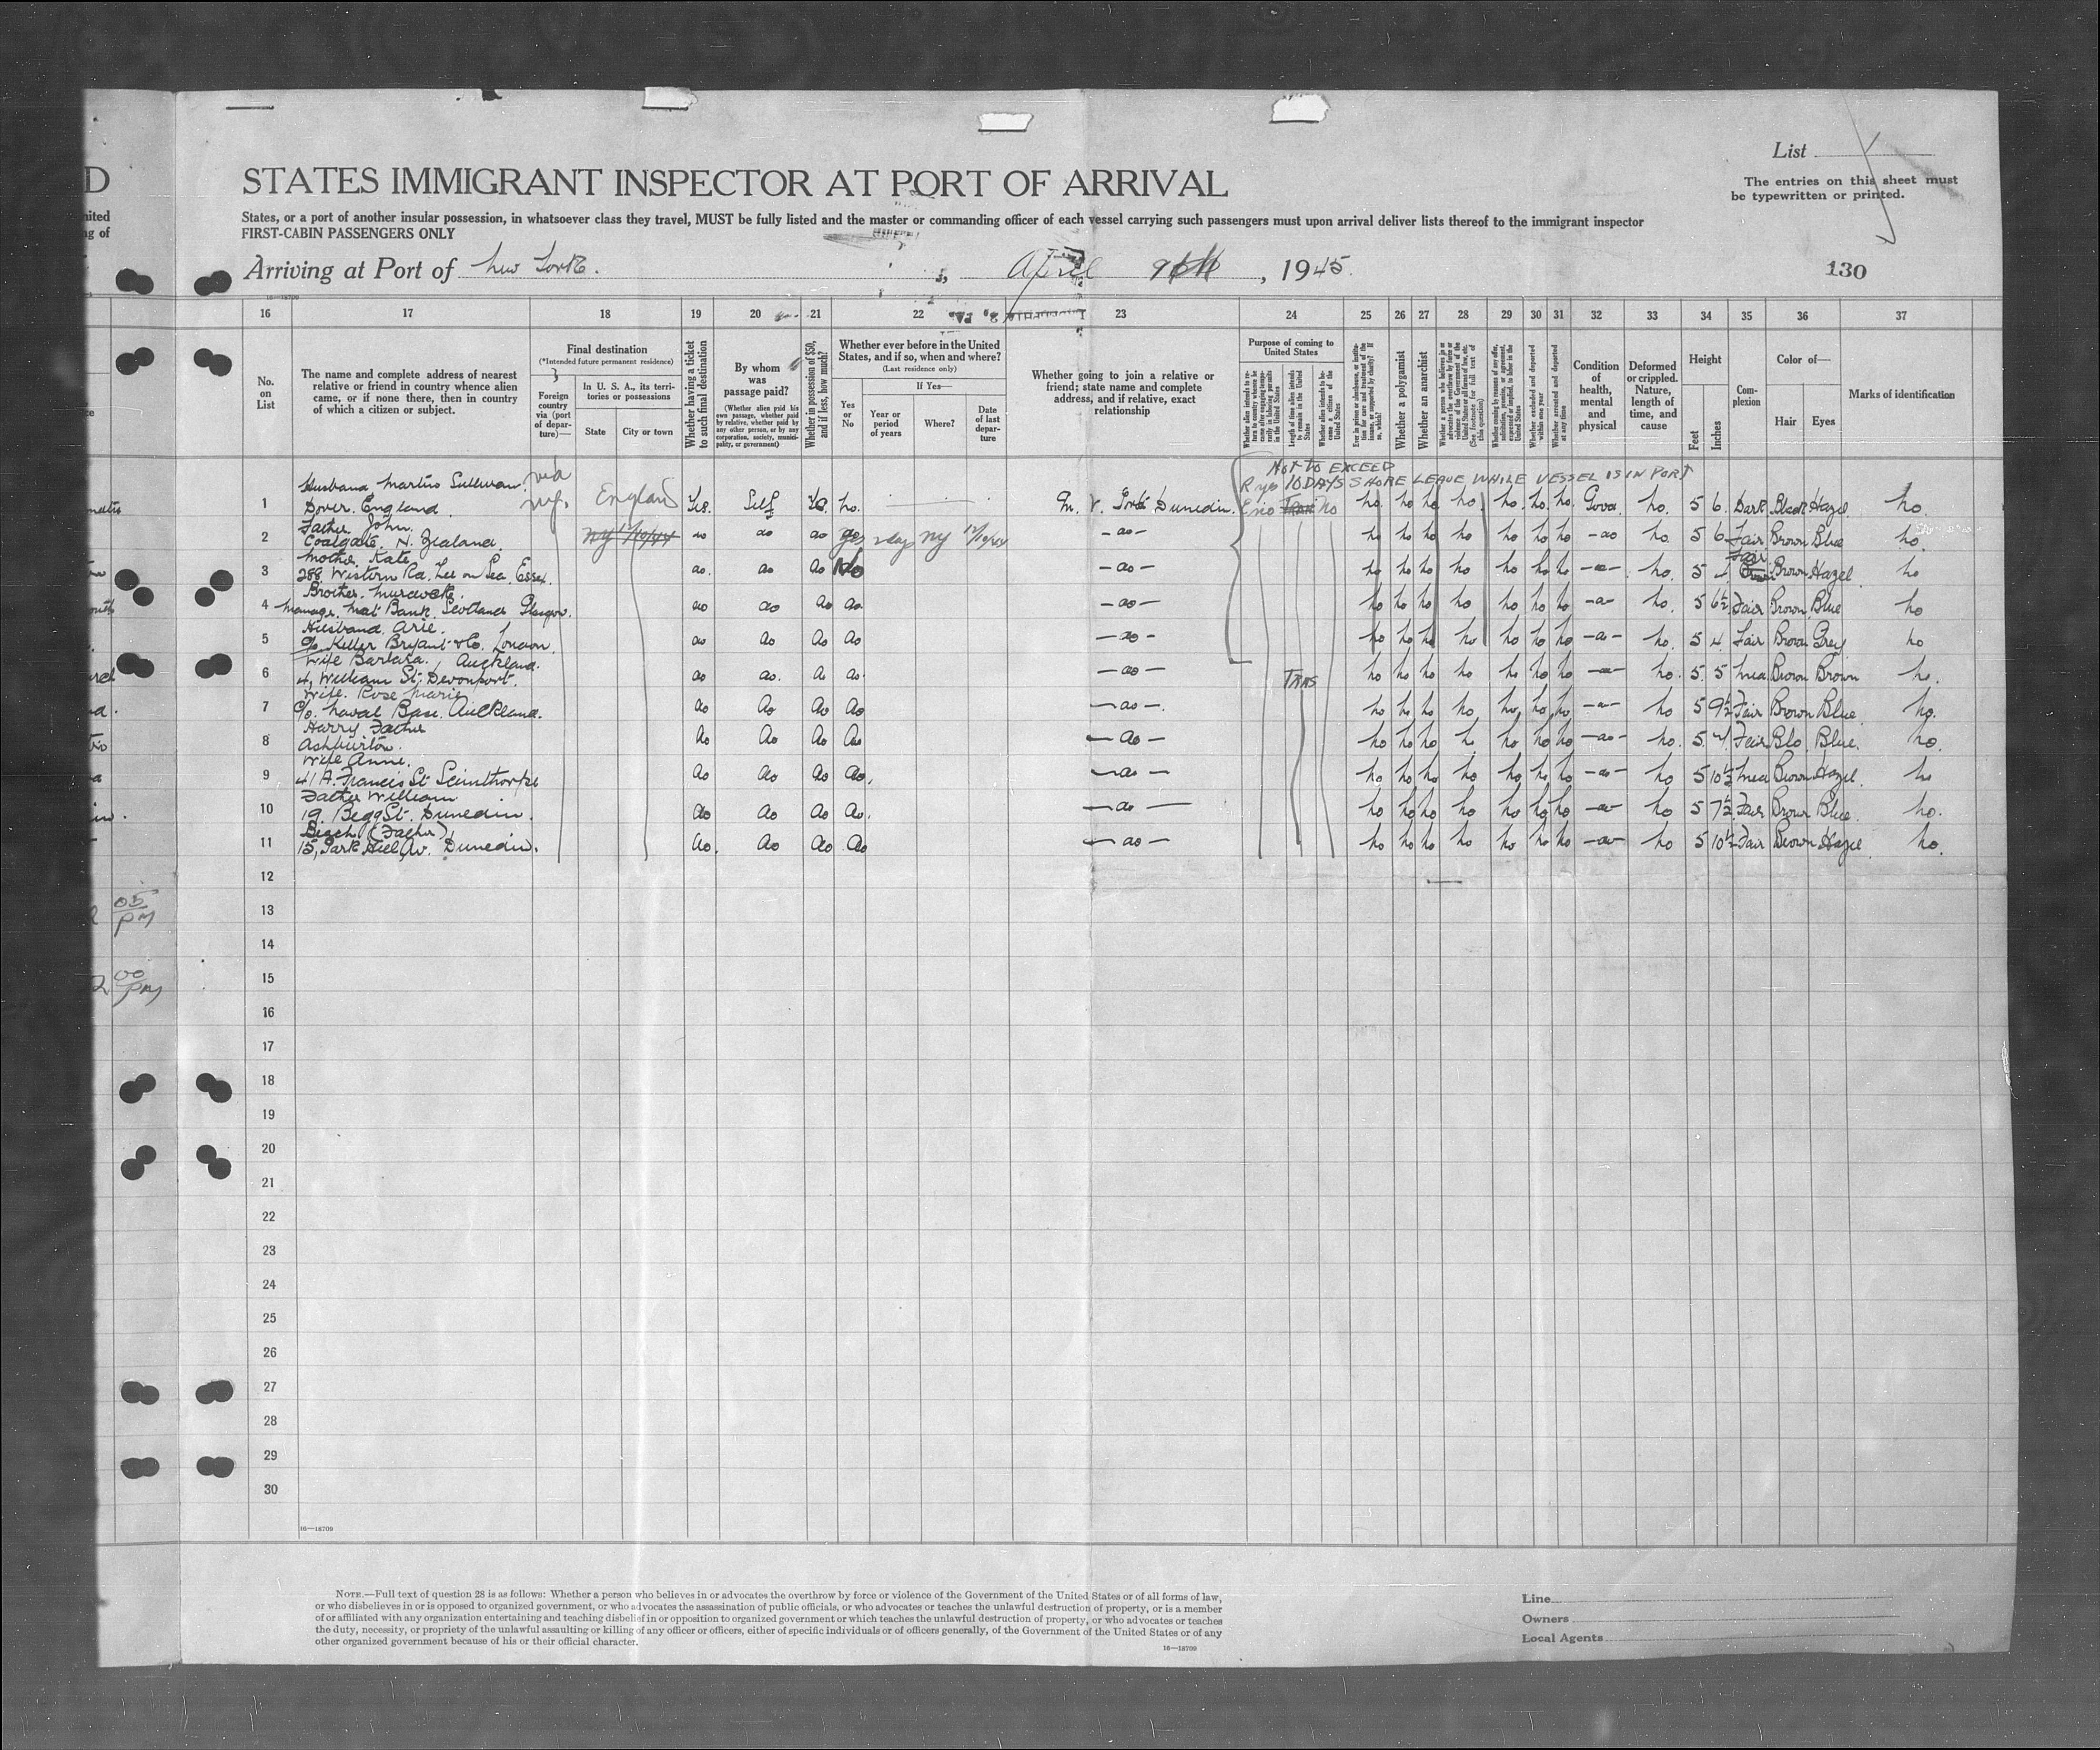 D
STATES IMMIGRANT INSPECTOR AT PORT OF ARRIVAL
List
The entries on this sheet must
be typewritten or printed.
States, or a port of another insular possession, in whatsoever class they travel, MUST be fully listed and the master or commanding officer of each vessel carrying such passengers must upon arrival deliver lists thereof to the immigrant inspector
FIRST-CABIN PASSENGERS ONLY
Arriving at Port of New York. , April 9th , 1945.
130
16—18709
16 17 18 19 20 21 22 23 24 25 26 27 28 29 30 31 32 33 34 35 36 37
No.
on
List
The name and complete address of nearest
relative or friend in country whence alien
came, or if none there, then in country
of which a citizen or subject.
Final destination
(*Intended future permanent residence)
Foreign
country
via (port
of depar-
ture)—
In U. S. A., its terri-
tories or possessions
State City or town
Whether having a ticket
to such final destination
By whom
was
passage paid?
(Whether alien paid his
own passage, whether paid
by relative, whether paid by
any other person, or by any
corporation, society, munici-
pality, or government)
Whether in possession of $50,
and if less, how much?
Whether ever before in the United
States, and if so, when and where?
(Last residence only)
Yes
or
No
If Yes—
Year or
period
of years
Where?
Date
of last
depar-
ture
Whether going to join a relative or
friend; state name and complete
address, and if relative, exact
relationship
Purpose of coming to
United States
Length of time alien intends
to remain in the United
States
Whether a polygamist
Whether an anarchist
Whether excluded and deported
within one year
Whether arrested and deported
at any time
Condition
of
health,
mental
and
physical
Deformed
or crippled.
Nature,
length of
time, and
cause
Height
Feet Inches
Com-
plexion
Color of—
Hair Eyes
Marks of identification
NOT TO EXCEED
10 DAYS SHORE LEAVE WHILE VESSEL IS IN PORT
via
Husband Martin Sullivan.
1 Dover. England. England Yes. Self No. M. V. Port Dunedin. No No No No No No No No. Good. No. 5 6. Dark Black Hazel. No.
Father John.
2 Coalgate. N. Zealand. NY 12/10/44 do do do Yes 2 days NY 12/10/44 - do - No No No No No No No - do No 5 6 Fair Brown Blue No.
Mother Kate
3 288 Western Rd. Lee on Sea Essex. do. do do No - do - No No No No No No No - do - No. 5 4 Fair Brown Hazel. No
Brother. Murdock.
4 Manager Nat Bank Scotland Glasgow. do do do do - do - No No No No No No No - do - No. 5 6½ Fair Brown Blue No
Husband. Arie.
5 c/o Killer Bryant & Co. London. do do do do - do - No No No No No No No - do - No. 5 4 Fair Brown Grey No
Wife Barbara. Auckland.
6 4, William St. Devonport. do do. do do - do - TRNS No No No No No No No - do - No. 5 5 Med Brown Brown No.
Wife. Rose Marie
7 c/o. Naval Base. Auckland. do do do do - do -. No No No No No No No - do - No 5 9½ Fair Brown Blue No.
Harry Father
8 Ashburton. do do do do - do - No No No No No No No - do - No. 5 Fair Blo. Blue. No.
Wife Anne.
9 41 A. Francis St Scunthorpe do do do do. - do - No No No No No No No - do - No 5 10½ Med Brown Hazel No
Father William
10 19. Begg St. Dunedin. do do do do. - do - No No No No No No No - do - No 5 7½ Fair Brown Blue. No.
(Father)
11 15, Park Hill Av. Dunedin. do. do do do - do - No No No No No No No - do - No 5 10½ Fair Brown Hazel No.
12
13
14
15
16
17
18
19
20
21
22
23
24
25
26
27
28
29
30
16—18709
NOTE.—Full text of question 28 is as follows: Whether a person who believes in or advocates the overthrow by force or violence of the Government of the United States or of all forms of law,
or who disbelieves in or is opposed to organized government, or who advocates the assassination of public officials, or who advocates or teaches the unlawful destruction of property, or is a member
of or affiliated with any organization entertaining and teaching disbelief in or opposition to organized government or which teaches the unlawful destruction of property, or who advocates or teaches
the duty, necessity, or propriety of the unlawful assaulting or killing of any officer or officers, either of specific individuals or of officers generally, of the Government of the United States or of any
other organized government because of his or their official character.
16—18709
Line
Owners
Local Agents